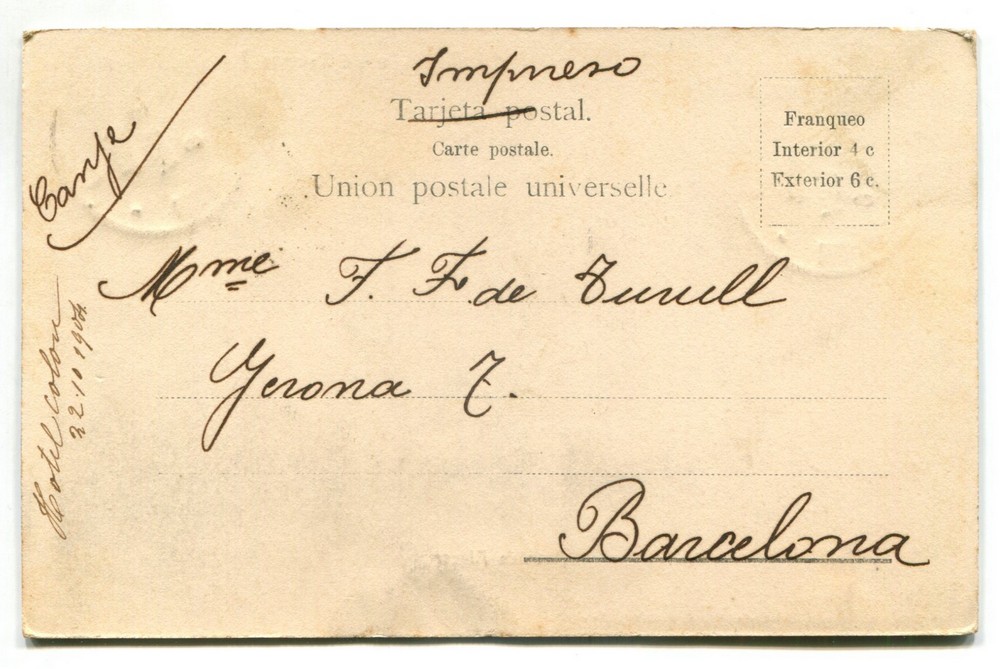 Impreso
Tarjeta postal.
Carte postale.
Union postale universelle
Franqueo
Interior 4 c
Exterior 6 c.
Canje
Mme F. F. de Turull
Gerona 7.
Barcelona
Hotel Colon
22.10 1904